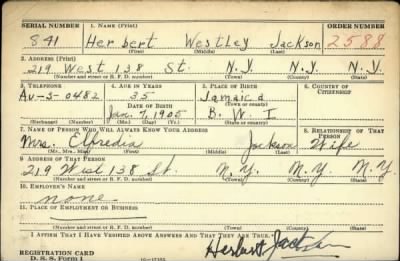 SERIAL NUMBER 1. NAME (Print) ORDER NUMBER
841 Herbert Westley Jackson 2588
(First) (Middle) (Last)
2. ADDRESS (Print)
219 West 138 St. N.Y. N.Y. N.Y.
(Number and street or R. F. D. number) (Town) (County) (State)
3. TELEPHONE 4. AGE IN YEARS 5. PLACE OF BIRTH 6. COUNTRY OF CITIZENSHIP
Au-5-0482 35 Jamaica
DATE OF BIRTH (Town or county)
Jan. 7, 1905 B. W. I.
(Exchange) (Number) (Mo.) (Day) (Yr.) (State or country)
7. NAME OF PERSON WHO WILL ALWAYS KNOW YOUR ADDRESS 8. RELATIONSHIP OF THAT PERSON
Mrs. Elfredia Jackson Wife
(Mr., Mrs., Miss) (First) (Middle) (Last)
9. ADDRESS OF THAT PERSON
219 West 138 St. N.Y. N.Y. N.Y.
(Number and street or R. F. D. number) (Town) (County) (State)
10. EMPLOYER'S NAME
none
11. PLACE OF EMPLOYMENT OR BUSINESS
(Number and street or R. F. D. number) (Town) (County) (State)
I AFFIRM THAT I HAVE VERIFIED ABOVE ANSWERS AND THAT THEY ARE TRUE.
Herbert Jackson
REGISTRATION CARD
D. S. S. Form 1